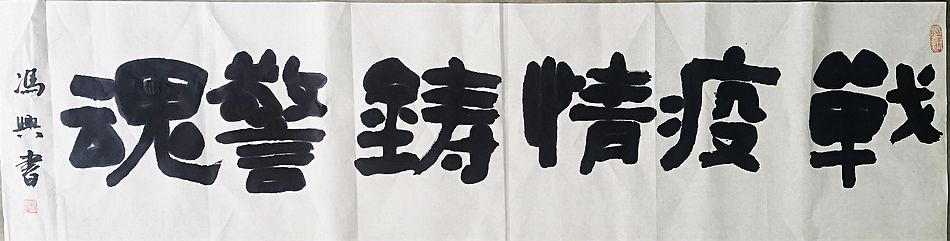 戰疫情鑄警魂
馮興書